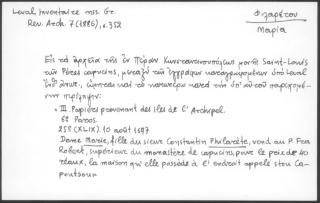 Laval Inventaire mss. Gr.
Rev. Arch. 7 (1886), σ. 352
Φιλαρέτου
Μαρία
Εἰς τὰ ἀρχεῖα τῆς ἐν Πέραν Κωνσταντινουπόλεως μονῆς Saint-Louis
τῶν Pères capucins, μεταξὺ τῶν ἐγγράφων καταγεγραμμένων ὑπὸ Laval
ἔνθ' ἀνωτ., εὑρίσκεται καὶ τὸ κατωτέρω κατὰ τὴν ὑπ' αὐτοῦ παρεχομέ-
νην περίληψιν:
" III. Papiers provenant des Iles de l'Archipel.
6º Paros.
258 (XLIX). 10 août 1687
Dame Marie, fille du sieur Constantin Philarette, vend au P. Fra
Robert, supérieur du monastère de capucins, pour le prix de 40
réaux, la maison qu'elle possède à l'endroit appelé stou Ca-
poutsou"